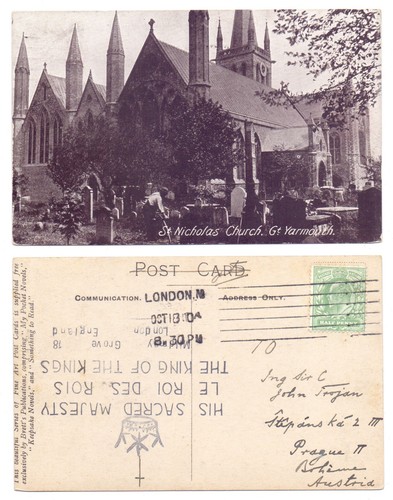 St Nicholas Church, Gt Yarmouth.
POST CARD
COMMUNICATION.
ADDRESS ONLY.
LONDON.N
OCT 18 04
8.30PM
HALF PENNY
This beautiful Series of Fine Art Post Cards is supplied free
exclusively by Brett's Publications, comprising "My Pocket Novels,"
"Keepsake Novels," and "Something to Read"
HIS SACRED MAJESTY
LE ROI DES ROIS
THE KING OF THE KINGS
Grove 18
London
England
TO
Ing Sir C
John Trojan
Štěpánská 2 III
Prague II
Bohême
Austria